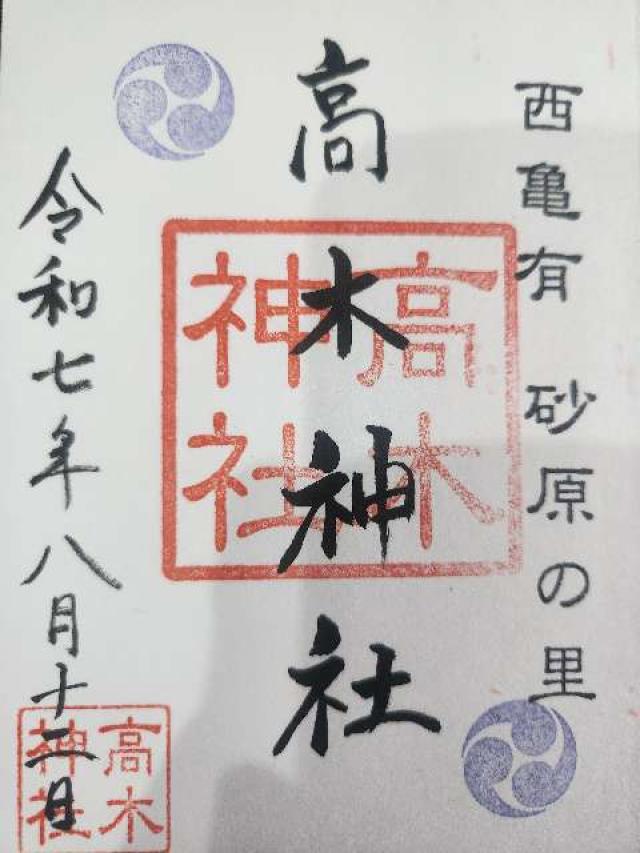 西亀有 砂原の里
高木神社
高木
神社
令和七年八月十二日
高木
神社